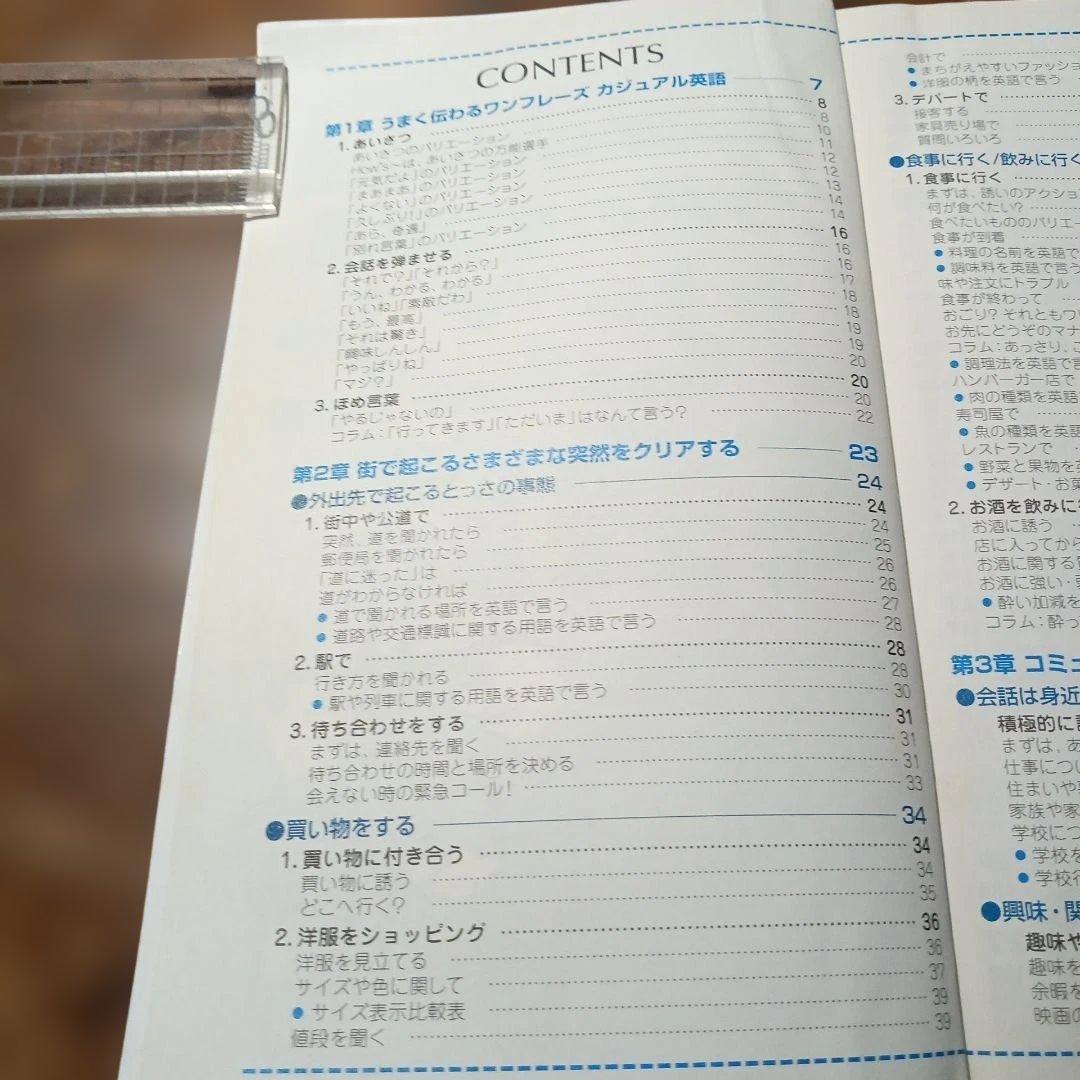 CONTENTS
第1章 うまく伝わるワンフレーズ カジュアル英語 7
1. あいさつ 8
あいさつのバリエーション 8
How's~は、あいさつの万能選手 10
「元気だよ」のバリエーション 11
「まあまあ」のバリエーション 12
「よくない」のバリエーション 12
「久しぶり!」のバリエーション 13
「あら、奇遇」 14
「別れ言葉」のバリエーション 14
2. 会話を弾ませる 16
「それで?」「それから?」 16
「うん、わかる、わかる」 16
「いいね」「素敵だわ」 17
「もう、最高」 18
「それは驚き」 18
「興味しんしん」 19
「やっぱりね」 19
「マジ?」 20
3. ほめ言葉 20
「やるじゃないの」 20
コラム:「行ってきます」「ただいま」はなんて言う? 22
第2章 街で起こるさまざまな突然をクリアする 23
●外出先で起こるとっさの事態 24
1. 街中や公道で 24
突然、道を聞かれたら 24
郵便局を聞かれたら 25
「道に迷った」は 26
道がわからなければ 26
● 道で聞かれる場所を英語で言う 27
● 道路や交通標識に関する用語を英語で言う 28
2. 駅で 28
行き方を聞かれる 28
● 駅や列車に関する用語を英語で言う 30
3. 待ち合わせをする 31
まずは、連絡先を聞く 31
待ち合わせの時間と場所を決める 31
会えない時の緊急コール! 33
●買い物をする 34
1. 買い物に付き合う 34
買い物に誘う 34
どこへ行く? 35
2. 洋服をショッピング 36
洋服を見立てる 36
サイズや色に関して 37
● サイズ表示比較表 39
値段を聞く 39
会計で
● まちがえやすいファッショ
● 洋服の柄を英語で言う
3. デパートで
接客する
家具売り場で
質問いろいろ
●食事に行く/飲みに行く
1. 食事に行く
まずは、誘いのアクショ
何が食べたい?
食べたいもののバリエー
食事が到着
● 料理の名前を英語で
● 調味料を英語で言う
味や注文にトラブル
食事が終わって
おごり? それともワリ
お先にどうぞのマナ
コラム:あっさり、こ
● 調理法を英語で言
ハンバーガー店で
● 肉の種類を英語
寿司屋で
● 魚の種類を英語
レストランで
● 野菜と果物を英
● デザート・お菓
2. お酒を飲みに
お酒に誘う
店に入ってから
お酒に関する
お酒に強い・
● 酔い加減を
コラム:酔っ
第3章 コミュ
●会話は身近
積極的に
まずは、あ
仕事につい
住まいや
家族や家
学校につ
● 学校を
● 学校行
●興味・関
趣味や
趣味を
余暇を
映画の